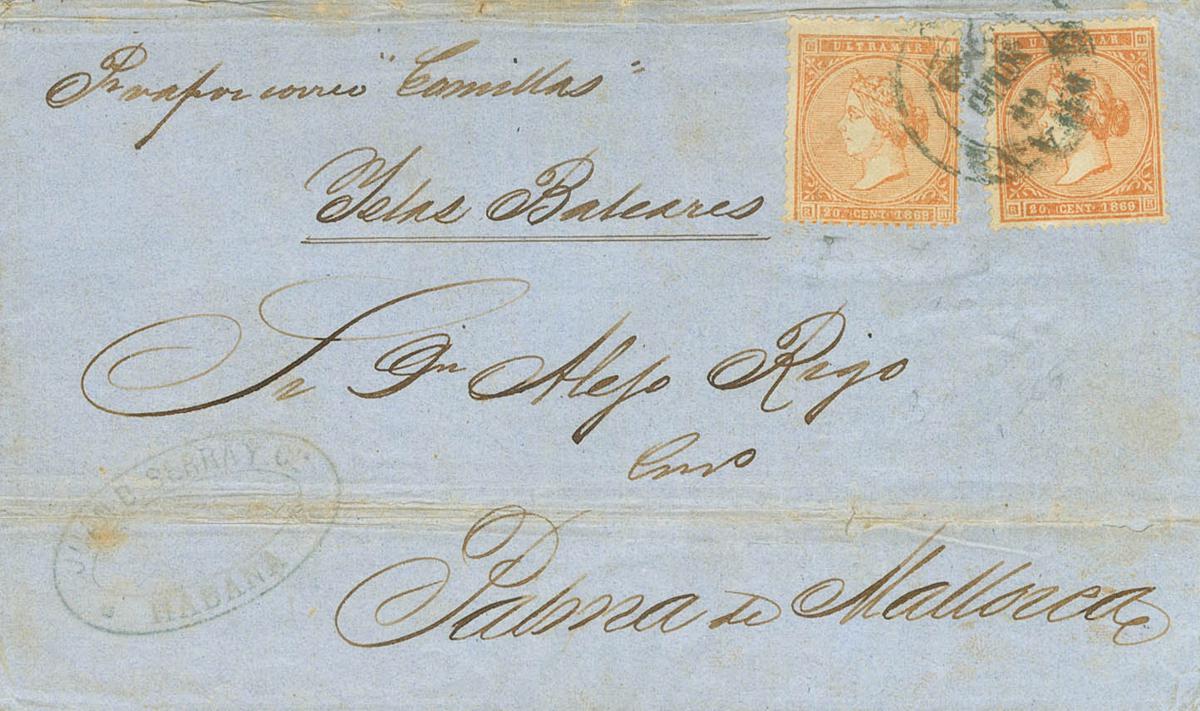 Pr vapor correo "Comillas"
Islas Baleares
Sr Dn Alejo Rigo
Palma de Mallorca
ULTRAMAR
20. CENT. 1869
ULTRAMAR
20. CENT. 1869
JUAN D. SERRA Y C.
HABANA